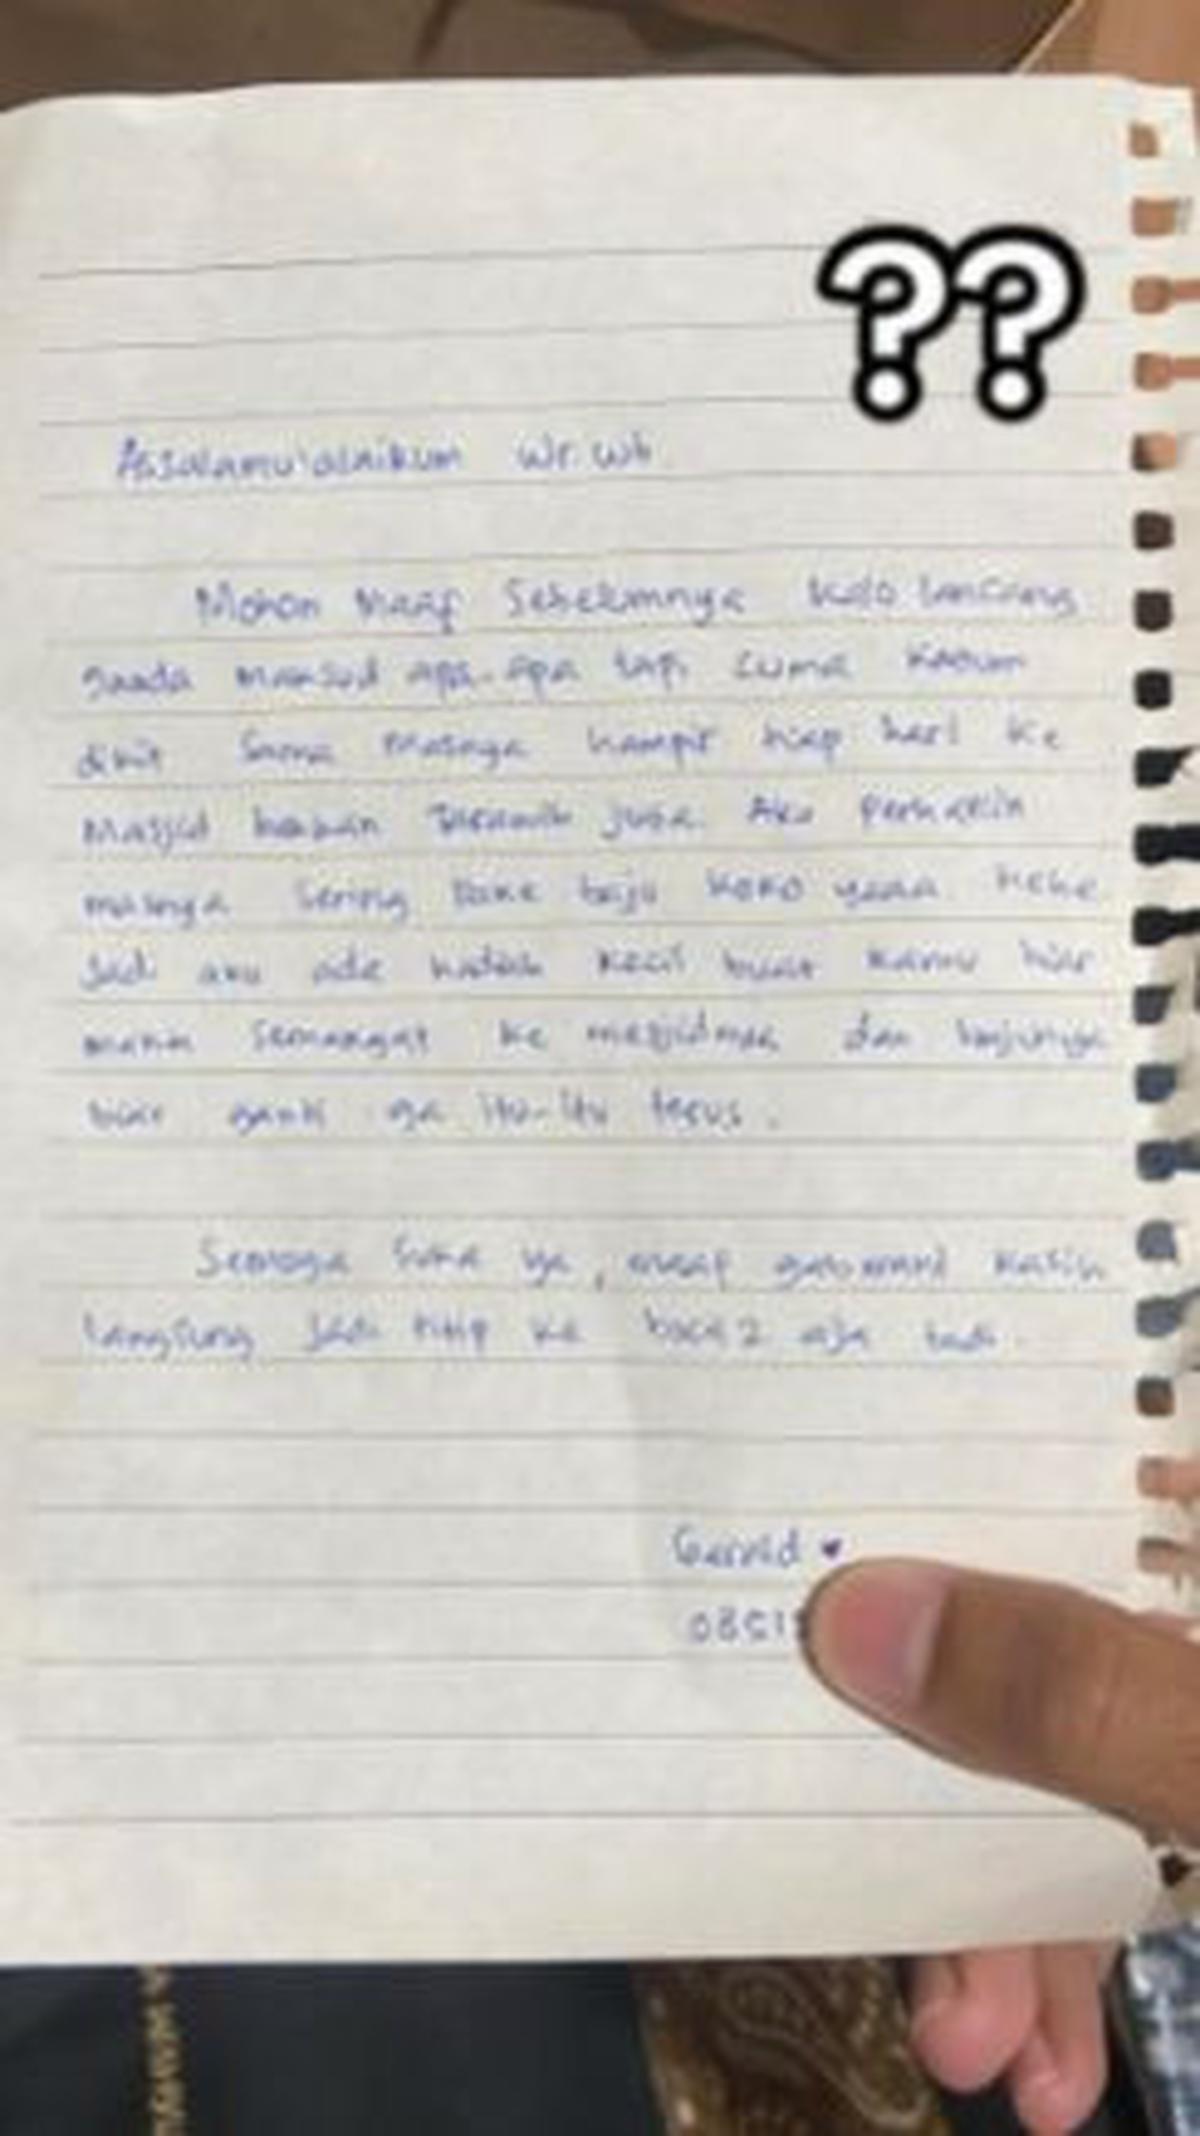 ??
Assalamu'alaikum wr. wb
Mohon maaf sebelumnya kalo lancang
gaada maksud apa-apa tapi cuma kagum
dikit sama masnya hampir tiap hari ke
masjid bahkan tarawih juga. Aku perhatiin
masnya sering pake baju koko yaaa hehe
jadi aku ada hadiah kecil buat kamu biar
makin semangat ke mesjidnya dan bajunya
biar ganti ga itu-itu terus.
Semoga suka ya, maaf gaberani kasih
langsung jadi titip ke boca2 aja tadi.
08515